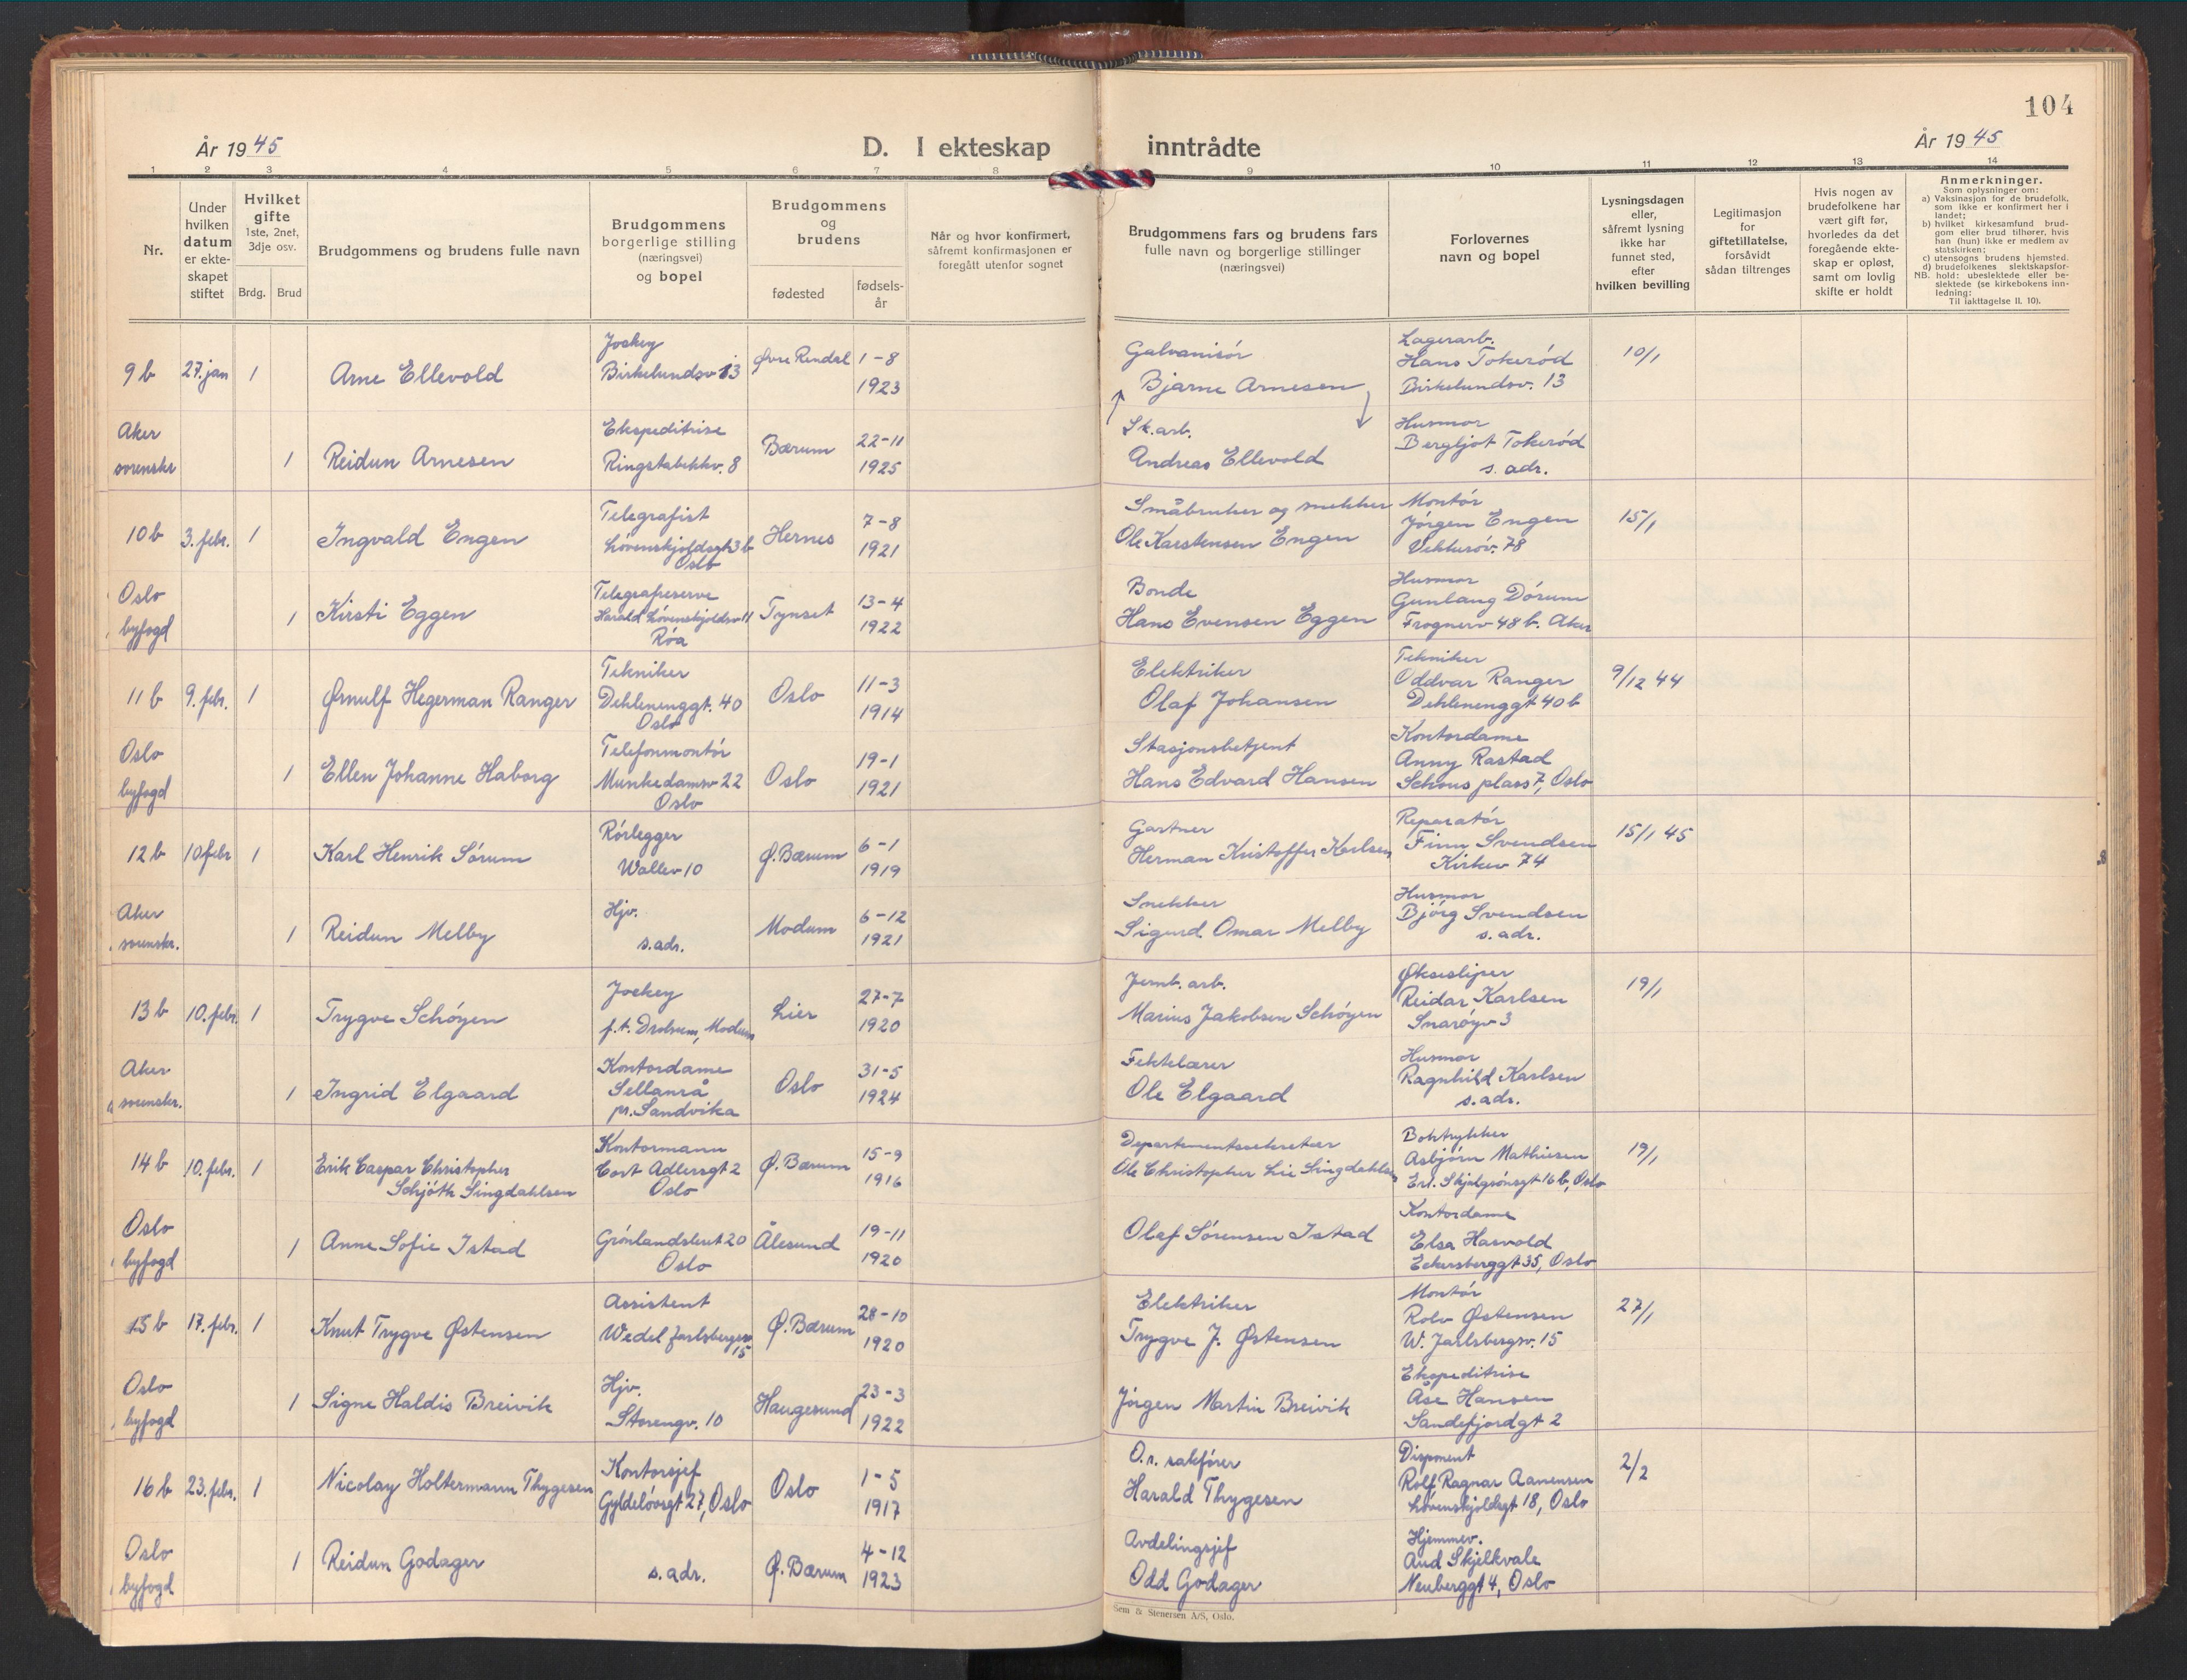 104
År 1945
D. I ekteskap inntrådte
År 1945
1 2 3 4 5 6 7 8 9 10 11 12 13 14
Nr.
Under hvilken datum er ekte-skapet stiftet
Hvilket gifte 1ste, 2net, 3dje osv.
Brdg. Brud
Brudgommens og brudens fulle navn
Brudgommens borgerlige stilling (næringsvei) og bopel
Brudgommens og brudens
fødested
fødsels-år
Når og hvor konfirmert, såfremt konfirmasjonen er foregått utenfor sognet
Brudgommens fars og brudens fars fulle navn og borgerlige stillinger (næringsvei)
Forlovernes navn og bopel
Lysningsdagen eller, såfremt lysning ikke har funnet sted, efter hvilken bevilling
Legitimasjon for giftetillatelse, forsåvidt sådan tiltrenges
Hvis nogen av brudefolkene har vært gift før, hvorledes da det foregående ekte-skap er opløst, samt om lovlig skifte er holdt
Anmerkninger.
Som oplysninger om:
a) Vaksinasjon for de brudefolk, som ikke er konfirmert her i landet;
b) hvilket kirkesamfund brud-gom eller brud tilhører, hvis han (hun) ikke er medlem av statskirken;
c) utensogns brudens hjemsted.
d) brudefolkenes slektskapsfor-
NB. hold: ubeslektede eller be-slektede (se kirkebokens inn-ledning:
Til iakttagelse II. 10).
9b 27. jan 1 Arne Ellevold Jockey Birkelundsv 13 Øvre Rendal 1-8 1923 Galvanisør Bjarne Arnesen Lagerarb. Hans Tokerød Birkelundsv. 13 10/1
Aker sorenskr 1 Reidun Arnesen Ekspeditrise Ringstabekkv. 8 Bærum 22-11 1925 Sk.arb. Andreas Ellevold Husmor Bergljot Tokerød s. adr.
10b 3. febr. 1 Ingvald Engen Telegrafist Løvenskjoldsgt 3b Oslo Hernes 7-8 1921 Småbruker og snekker Ole Karstensen Engen Montør Jørgen Engen 78 15/1
Oslo byfogd 1 Kirsti Eggen Telegrafreserve Harald Løvenskjoldsv 11 Røa Tynset 13-4 1922 Bonde Hans Evensen Eggen Husmor Gunlaug Dørum Frognerv 48 b. Aker
11b 9. febr. 1 Ørnulf Hegerman Ranger Tekniker Dehlenenggt. 40 Oslo Oslo 11-3 1914 Elektriker Olaf Johansen Tekniker Oddvar Ranger Dehlenenggt 40 b 9/12 44
Oslo byfogd 1 Ellen Johanne Haborg Telefonmontør Munkedamsv 22 Oslo Oslo 19-1 1921 Stasjonsbetjent Hans Edvard Hansen Kontordame Anny Rastad Schous plass 7, Oslo
12b 10 febr 1 Karl Henrik Sørum Rørlegger Wallev 10 Ø. Bærum 6-1 1919 Gartner Herman Kristoffer Karlsen Reparatør Finn Svendsen Kirkev 74 15/1 45
Aker sorenskr. 1 Reidun Melby Hjv. s.adr. Modum 6-12 1921 Snekker Sigurd Omar Melby Husmor Bjørg Svendsen s. adr.
13b 10. febr. 1 Trygve Schøyen Jockey p.t. Drolsum, Modum Lier 27-7 1920 Jernb. arb. Marius Jakobsen Schøyen Øksesliper Reidar Karlsen Snarøyv 3 19/1
Aker sorenskr. 1 Ingrid Elgaard Kontordame Sellanrå pr. Sandvika Oslo 31-5 1924 Fektelærer Ole Elgaard Husmor Ragnhild Karlsen s. adr.
14b 10. febr. 1 Erik Caspar Christopher Schjøth Singdahlsen Kontormann Cort Adlersgt 2 Oslo Ø. Bærum 15-9 1916 Departementssekretær Ole Christopher Lie Singdahlsen Boktrykker Asbjørn Mathiesen Erl. Skjalgsønsgt 16 b, Oslo 19/1
Oslo byfogd 1 Anne Sofie Istad Grønlandsleret 20 Oslo Ålesund 19-11 1920 Olaf Sørensen Istad Kontordame Elsa Harvold Eckersberggt 35, Oslo
15b 17. febr. 1 Knut Trygve Østensen Assistent Wedel Jarlsbergsv 15 Ø. Bærum 28-10 1920 Elektriker Trygve J. Østensen Montør Rolv Østensen W. Jarlsbergsv. 15 27/1
Oslo byfogd 1 Signe Haldis Breivik Hjv. Storengv. 10 Haugesund 23-3 1922 Jørgen Martin Breivik Ekspeditrise Åse Hansen Sandefjordgt 2
16b 23. febr. 1 Nicolay Holtermann Thygesen Kontorsjef Gyldeløvsgt 27, Oslo Oslo 1-5 1917 O.r. sakfører Harald Thygesen Disponent Rolf Ragnar Aanensen Løvenskjoldsgt 18, Oslo 2/2
Oslo byfogd 1 Reidun Godager s. adr. Ø. Bærum 4-12 1923 Avdelingsjef Odd Godager Hjemmev. Aud Skjelkvale Neuberggt 4, Oslo
Sem & Stenersen A/S, Oslo.